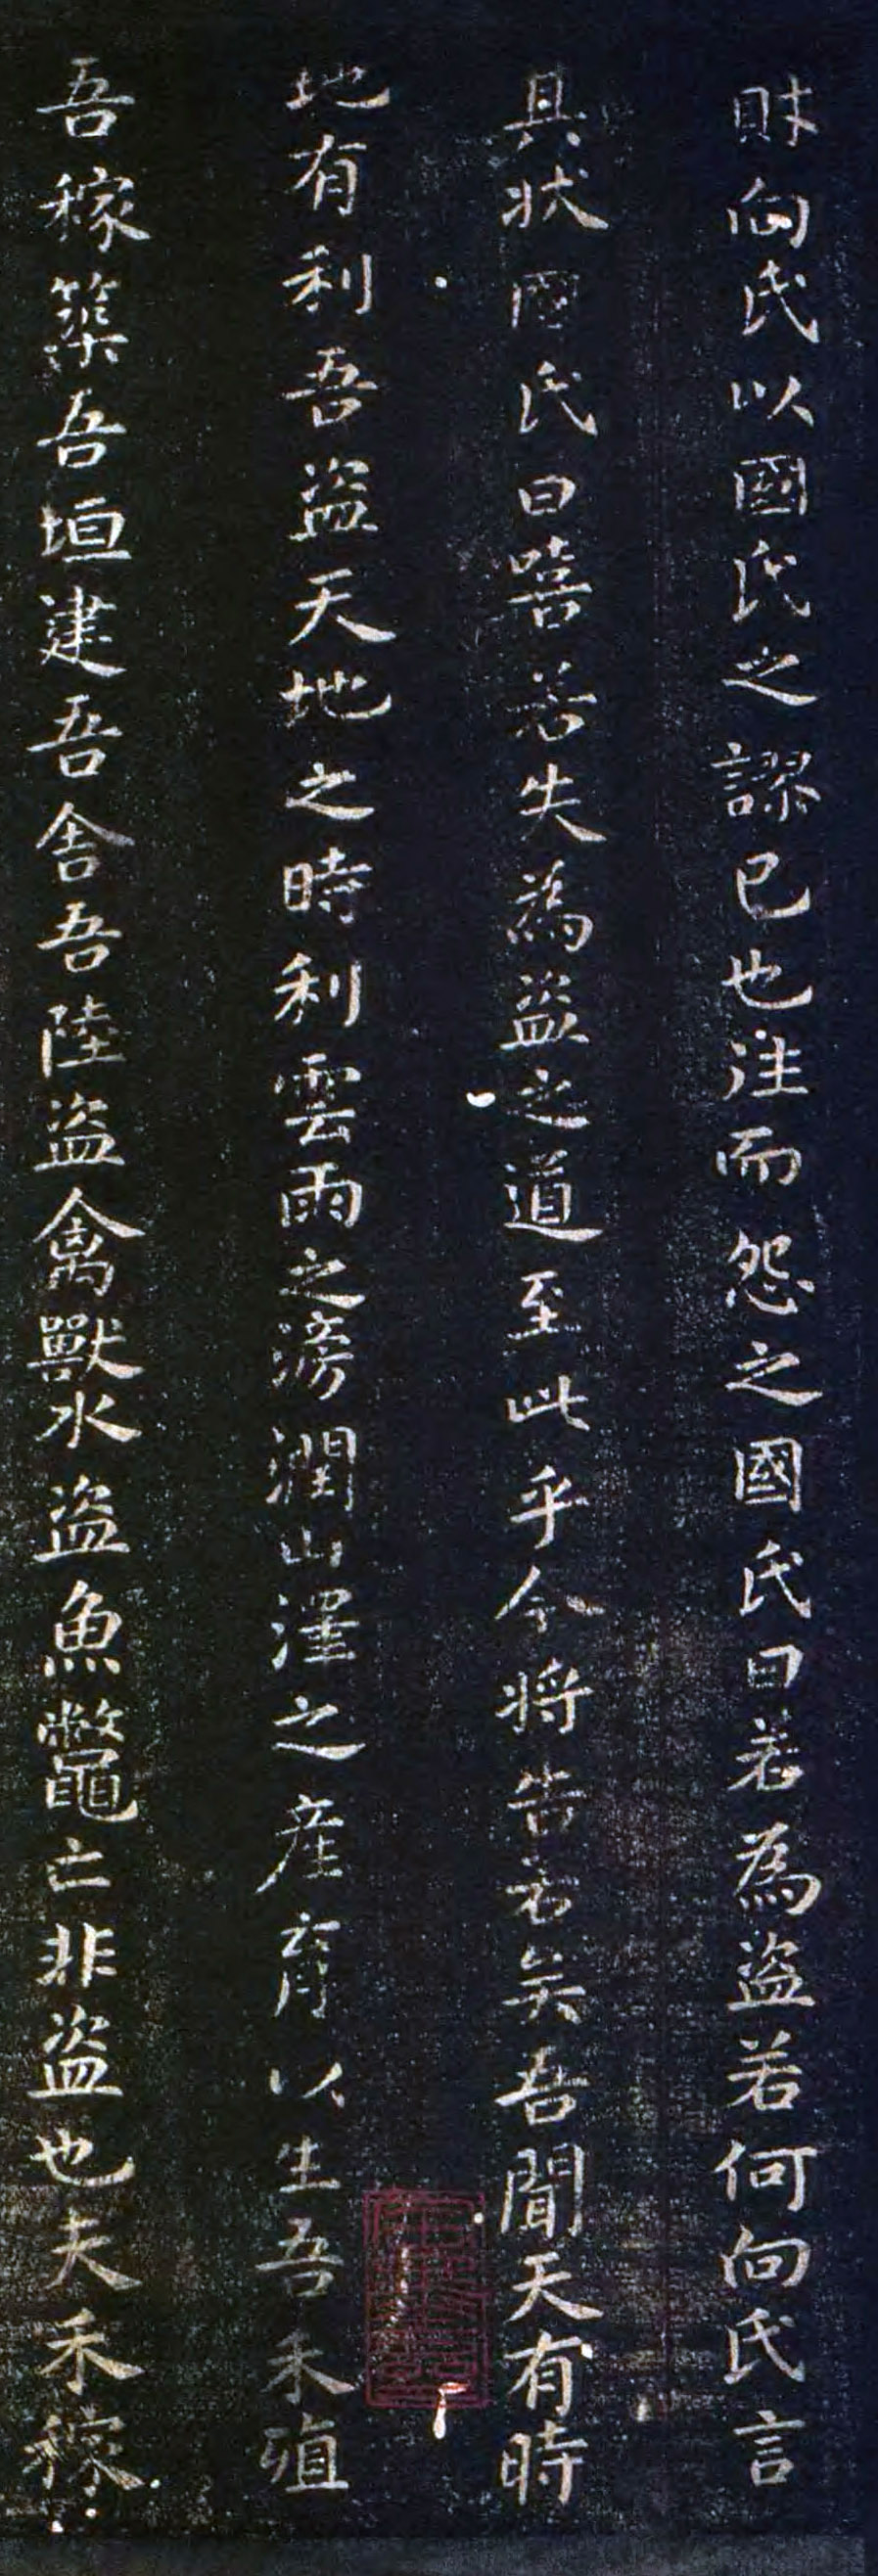 財向氏以國氏之謬已也往而怨之國氏曰若為盜若何向氏言
其狀國氏曰嘻若失為盜之道至此乎今將告若矣吾聞天有時
地有利吾盜天地之時利雲雨之滂潤山澤之產育以生吾禾殖
吾稼築吾垣建吾舍吾陸盜禽獸水盜魚鱉亡非盜也夫禾稼